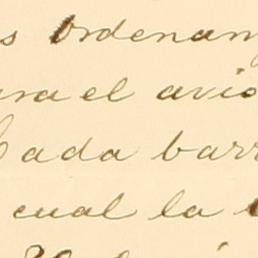 s Ordenan
ara el avio
Cada barr
cual la